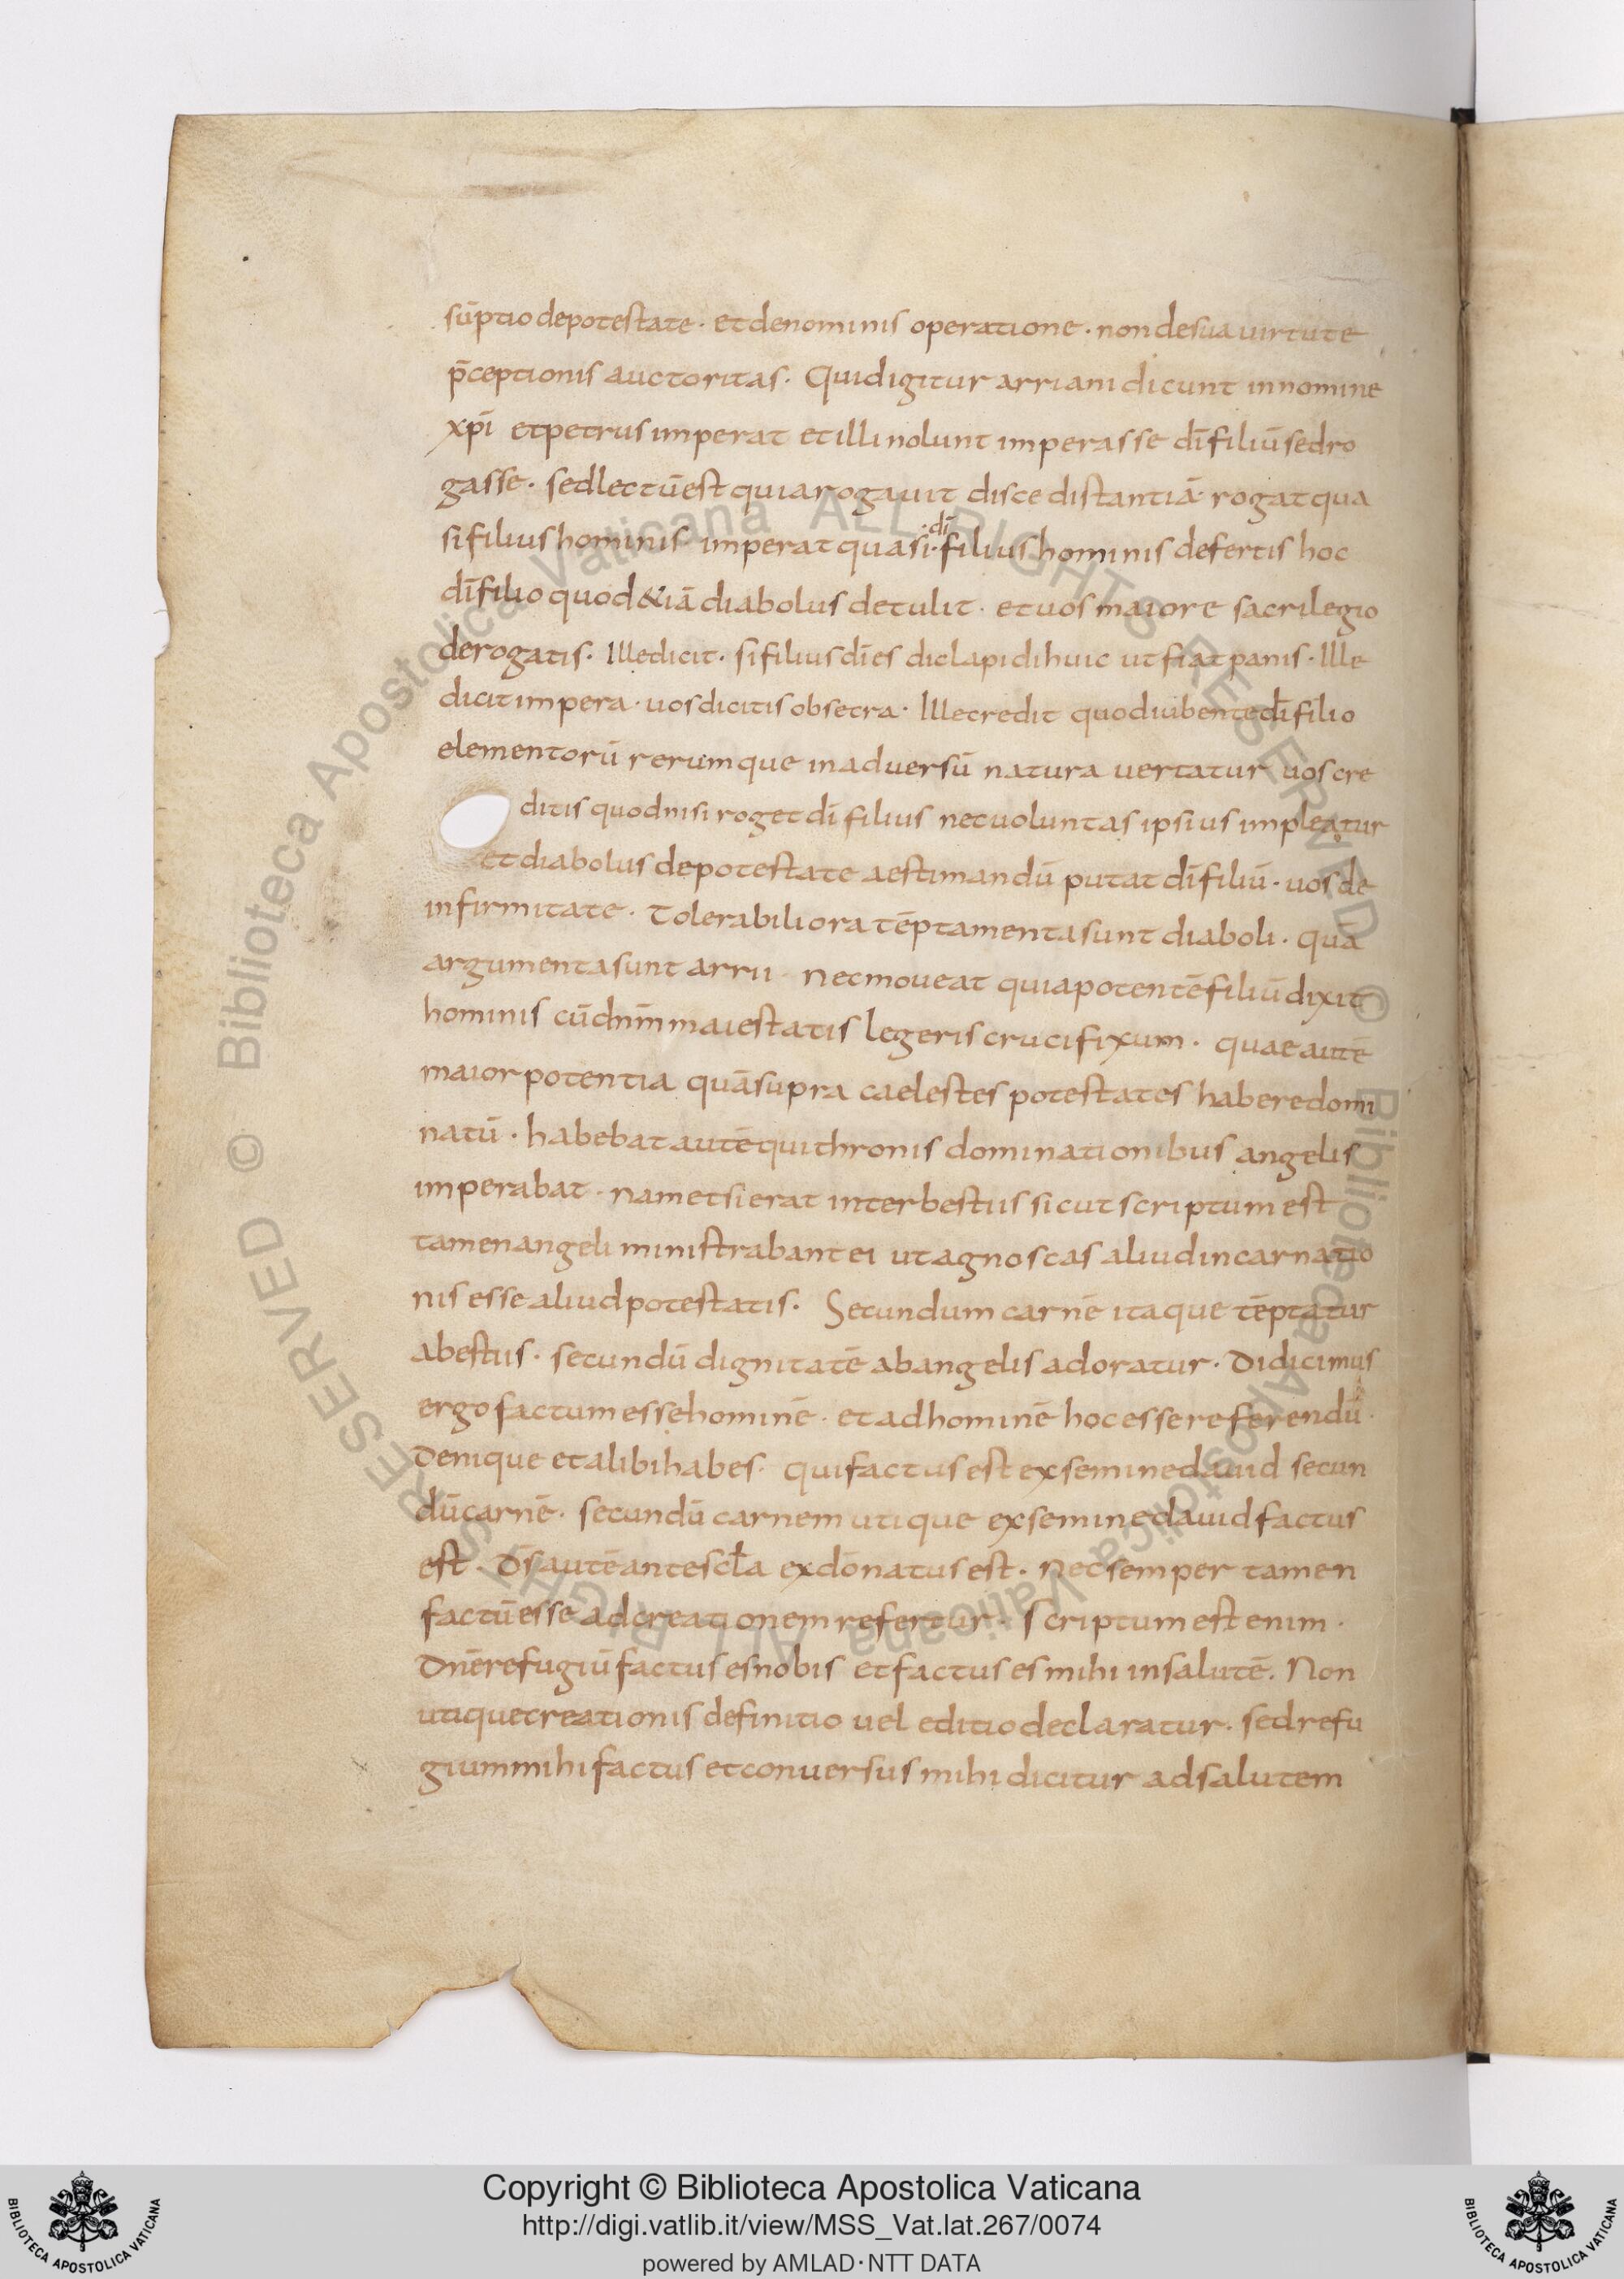 sūptio depotestate · et denominis operatione · non desua uirtute
p̄ceptionis auctoritas · Quid igitur arriani dicunt in nomine
xp̄i et petrus imperat et illi nolunt imperasse dī filiū sed ro
gasse · sed lectū est quia rogauit disce distantiā · rogat qua
si filius hominis · imperat quasi · dī · filius hominis defertis hoc
dī filio quod &iā diabolus detulit · et uos maiore sacrilegio
derogatis · Ille dicit · si filius dī es dic lapidi huic ut fiat panis · Ille
dicit impera · uos dicitis obsecra · Ille credit quod iubente dī filio
elementorū rerumque in aduersū natura uertatur uos cre
ditis quod nisi roget dī filius nec uoluntas ipsius impleatur
et diabolus de potestate aestimandū putat dī filiū · uos de
infirmitate · Tolerabiliora tēptamenta sunt diaboli · quā
argumenta sunt arrii · Nec moueat quia potentē filiū dixit
hominis cū dnīm maiestatis legeris crucifixum · quae autē
maior potentia quā supra caelestes potestates habere domi
natū · habebat autē qui thronis dominationibus angelis
imperabat · nam etsi erat inter bestiis sicut scriptum est
tamen angeli ministrabant ei ut agnoscas aliud incarnatio
nis esse aliud potestatis · Secundum carnē itaque tēptatur
abestiis · secundū dignitatē ab angelis adoratur · Didicimus
ergo factum esse hominē · et ad hominē hoc esse referendū ·
Denique et alibi habes · qui factus est ex semine dauid secun
dū carnē · secundū carnem utique ex semine dauid factus
est · Dī̄s autē ante scl̄a ex dō natus est · Nec semper tamen
factū esse ad creationem refertur · Scriptum est enim ·
Dnē refugiū factus es nobis et factus es mihi in salutē · Non
utique creationis definitio uel editio declaratur · sed refu
gium mihi factus et conuersus mihi dicitur ad salutem
Copyright © Biblioteca Apostolica Vaticana
http://digi.vatlib.it/view/MSS_Vat.lat.267/0074
powered by AMLAD·NTT DATA
BIBLIOTECA APOSTOLICA VATICANA
BIBLIOTECA APOSTOLICA VATICANA
Biblioteca Apostolica Vaticana ALL RIGHTS RESERVED ©
Biblioteca Apostolica Vaticana ALL RIGHTS RESERVED ©